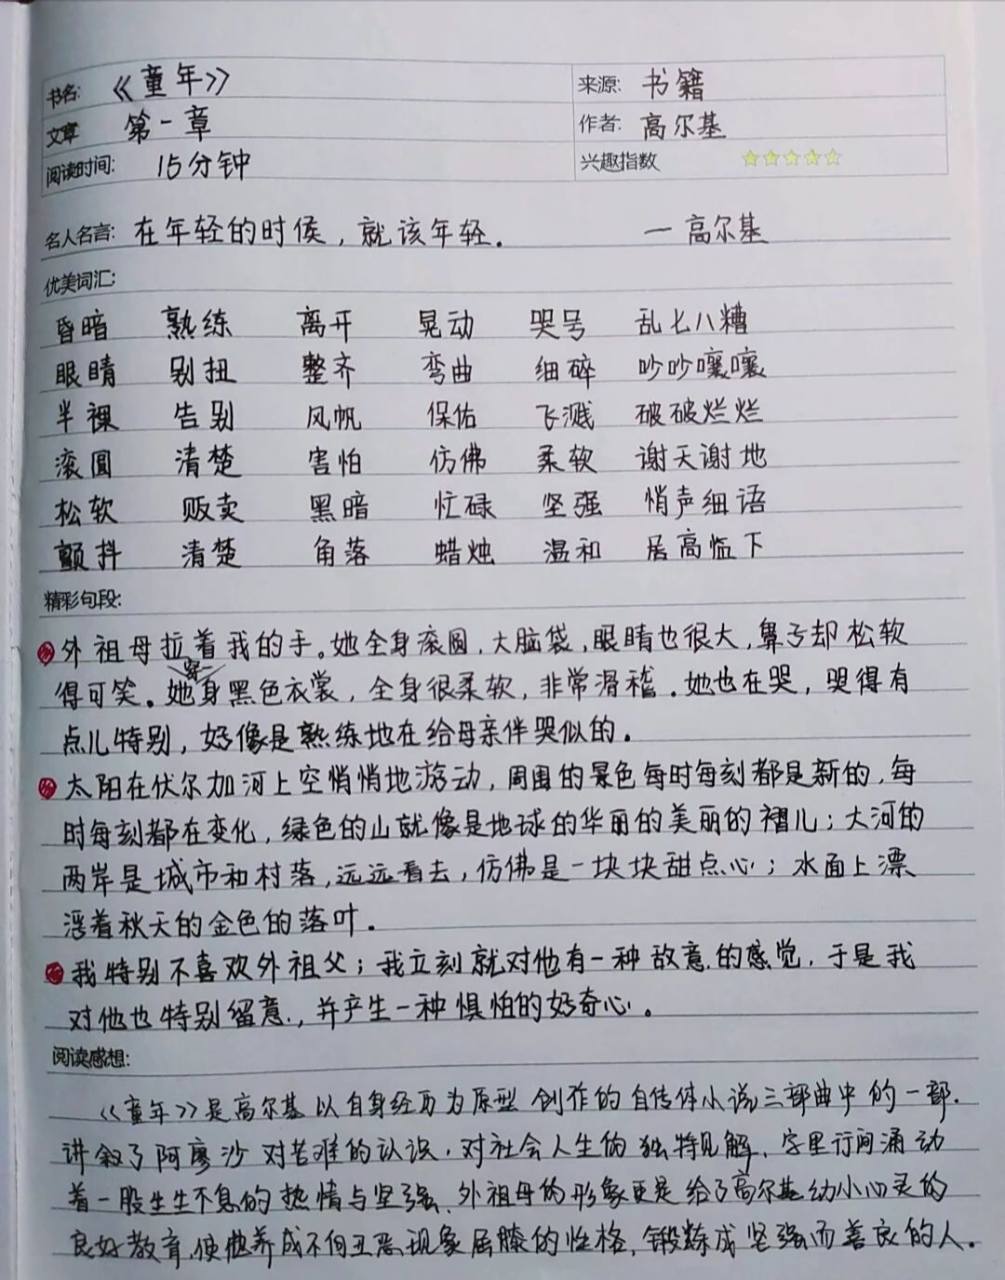 书名: 《童年》 来源: 书籍
文章 第一章 作者: 高尔基
阅读时间: 15分钟 兴趣指数 ☆☆☆☆☆
名人名言: 在年轻的时候，就该年轻。 一高尔基
优美词汇:
昏暗 熟练 离开 晃动 哭号 乱七八糟
眼睛 别扭 整齐 弯曲 细碎 吵吵嚷嚷
半裸 告别 风帆 保佑 飞溅 破破烂烂
滚圆 清楚 害怕 仿佛 柔软 谢天谢地
松软 贩卖 黑暗 忙碌 坚强 悄声细语
颤抖 清楚 角落 蜡烛 温和 居高临下
精彩句段:
外祖母拉着我的手。她全身滚圆，大脑袋，眼睛也很大，鼻子却松软
得可笑。她穿一身黑色衣裳，全身很柔软，非常滑稽。她也在哭，哭得有
点儿特别，好像是熟练地在给母亲伴哭似的。
太阳在伏尔加河上空悄悄地游动，周围的景色每时每刻都是新的，每
时每刻都在变化，绿色的山就像是地球的华丽的美丽的褶儿；大河的
两岸是城市和村落，远远看去，仿佛是一块块甜点心；水面上漂
浮着秋天的金色的落叶。
我特别不喜欢外祖父；我立刻就对他有一种敌意的感觉，于是我
对他也特别留意，并产生一种惧怕的好奇心。
阅读感想:
《童年》是高尔基以自身经历为原型创作的自传体小说三部曲中的一部.
讲叙了阿廖沙对苦难的认识，对社会人生的独特见解、字里行间涌动
着一股生生不息的热情与坚强、外祖母的形象更是给了高尔基幼小心灵的
良好教育，使他养成不向丑恶现象屈膝的性格，锻炼成坚强而善良的人。